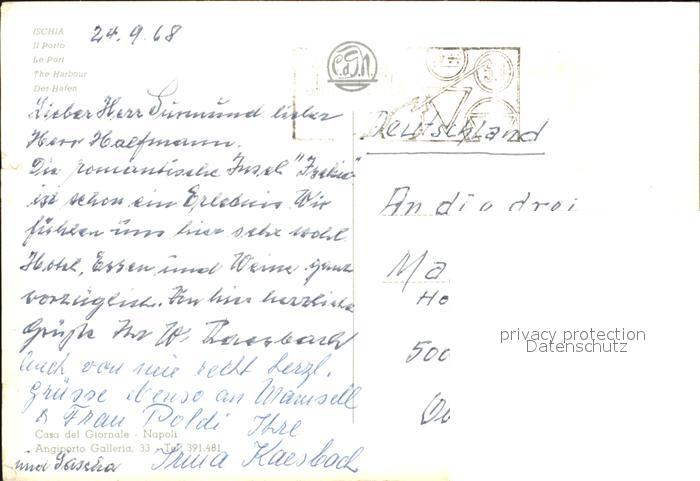 ISCHIA
Il Porto
Le Port
The Harbour
Der Hafen
24.9.68
C.d.G.N.
Lieber Herr Surmund lieber
Herr Halfmann.
Die romantische Insel "Ischia"
ist schon ein Erlebnis. Wir
fühlen uns hier sehr wohl.
Hotel, Essen und Weine ganz
vorzüglich. Von hier herzliche
Grüße Ihr W. Kaesbach
Auch von mir recht herzl.
Grüsse ebenso an Mamsell
& Frau Poldi Ihre
Irma Kaesbach
und Sascha
Casa del Giornale - Napoli
Angiporto Galleria, 33 - Tel. 391.481
Deutschland
An die drei
Ma
Ho
500
privacy protection
Datenschutz